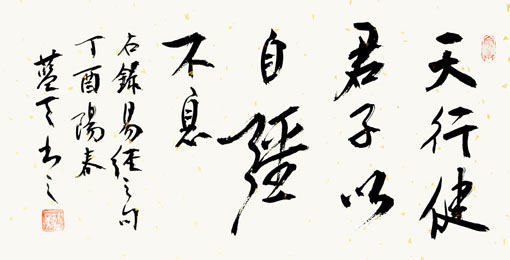 天行健
君子以
自彊
不息
右錄易經之句
丁酉陽春
蓝天书之